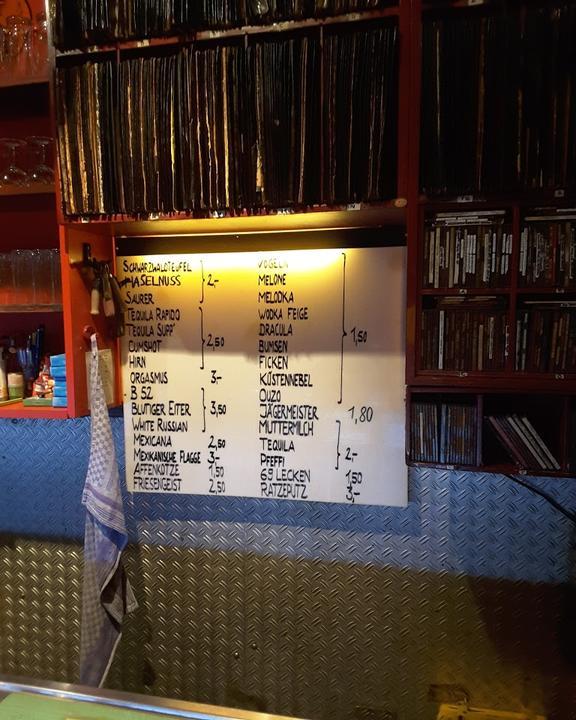 SCHWARZWALDTEUFEL
HASELNUSS 2,-
SAURER
TEQUILA RAPIDO
TEQUILA SUPP'
CUMSHOT 2,50
HIRN
ORGASMUS 3,-
B 52
BLUTIGER EITER 3,50
WHITE RUSSIAN
MEXICANA 2,50
MEXIKANISCHE FLAGGE 3,-
AFFENKOTZE 1,50
FRIESENGEIST 2,50
VÖGELN
MELONE
MELODKA
WODKA FEIGE
DRACULA 1,50
BUMSEN
FICKEN
KÜSTENNEBEL
OUZO
JÄGERMEISTER 1,80
MUTTERMILCH
TEQUILA 2,-
PFEFFI
69 LECKEN 1,50
RATZEPUTZ 3,-